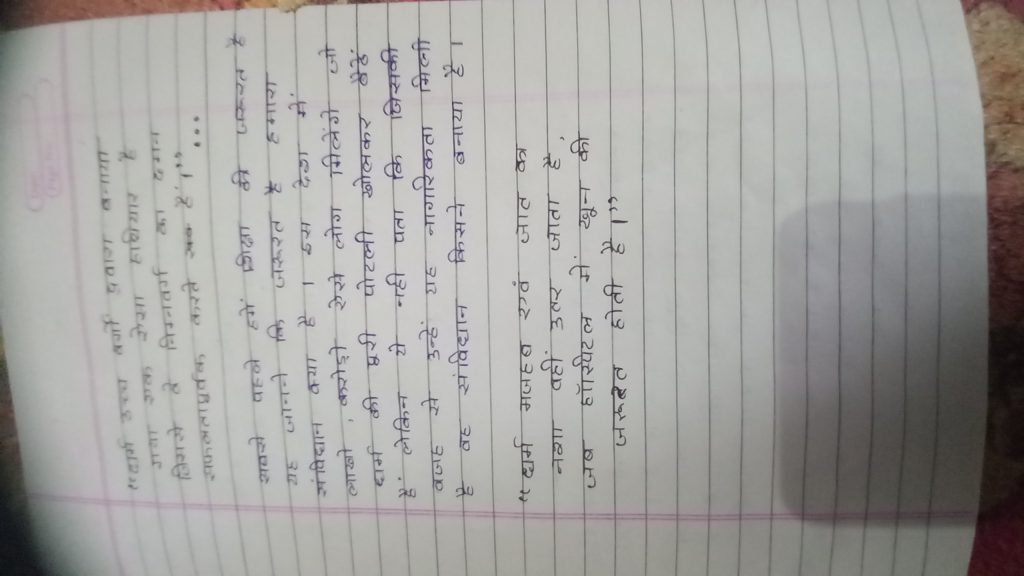 "धर्म उच्च वर्गो द्वारा बनाया
गया एक ऐसा हथियार है
जिससे वे निम्नवर्गो का दमन
सफलतापूर्वक करते है।"
...
सबसे पहले हमें शिक्षा की जरूरत है
यह जानने कि जरूरत है हमारा
संविधान क्या है। इस देश में
लाखो, करोड़ो ऐसे लोग मिलेंगे जो
धर्म की पूरी पोटली खोलकर बैठें
हैं लेकिन ये नही पता कि जिसकी
वजह से उन्हें यह नागरिकता मिली
है वह संविधान किसने बनाया है।
"धर्म मजहब एवं जात का
नशा वही उतर जाता है,
जब हॉस्पिटल में खून की
जरूरत होती है।"